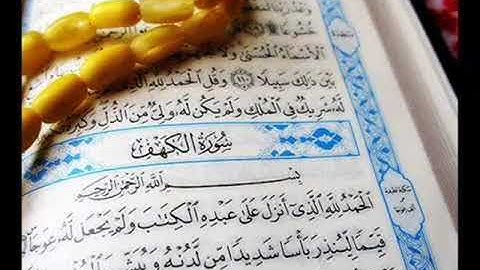 خُشُوعًا
الْأَسْمَاءُ الْحُسْنَىٰ وَلَا
بَيْنَ ذَٰلِكَ سَبِيلًا ١١٠ وَقُلِ الْحَمْدُ لِلَّهِ الَّذِي
لَّهُ شَرِيكٌ فِي الْمُلْكِ وَلَمْ يَكُن لَّهُ وَلِيٌّ مِّنَ الذُّلِّ وَكَبِّرْهُ
سُورَةُ الْكَهْفِ
بِسْمِ اللَّهِ الرَّحْمَٰنِ الرَّحِيمِ
الْحَمْدُ لِلَّهِ الَّذِي أَنزَلَ عَلَىٰ عَبْدِهِ الْكِتَابَ وَلَمْ يَجْعَل لَّهُ عِوَجًا
قَيِّمًا لِّيُنذِرَ بَأْسًا شَدِيدًا مِّن لَّدُنْهُ وَيُبَشِّرَ